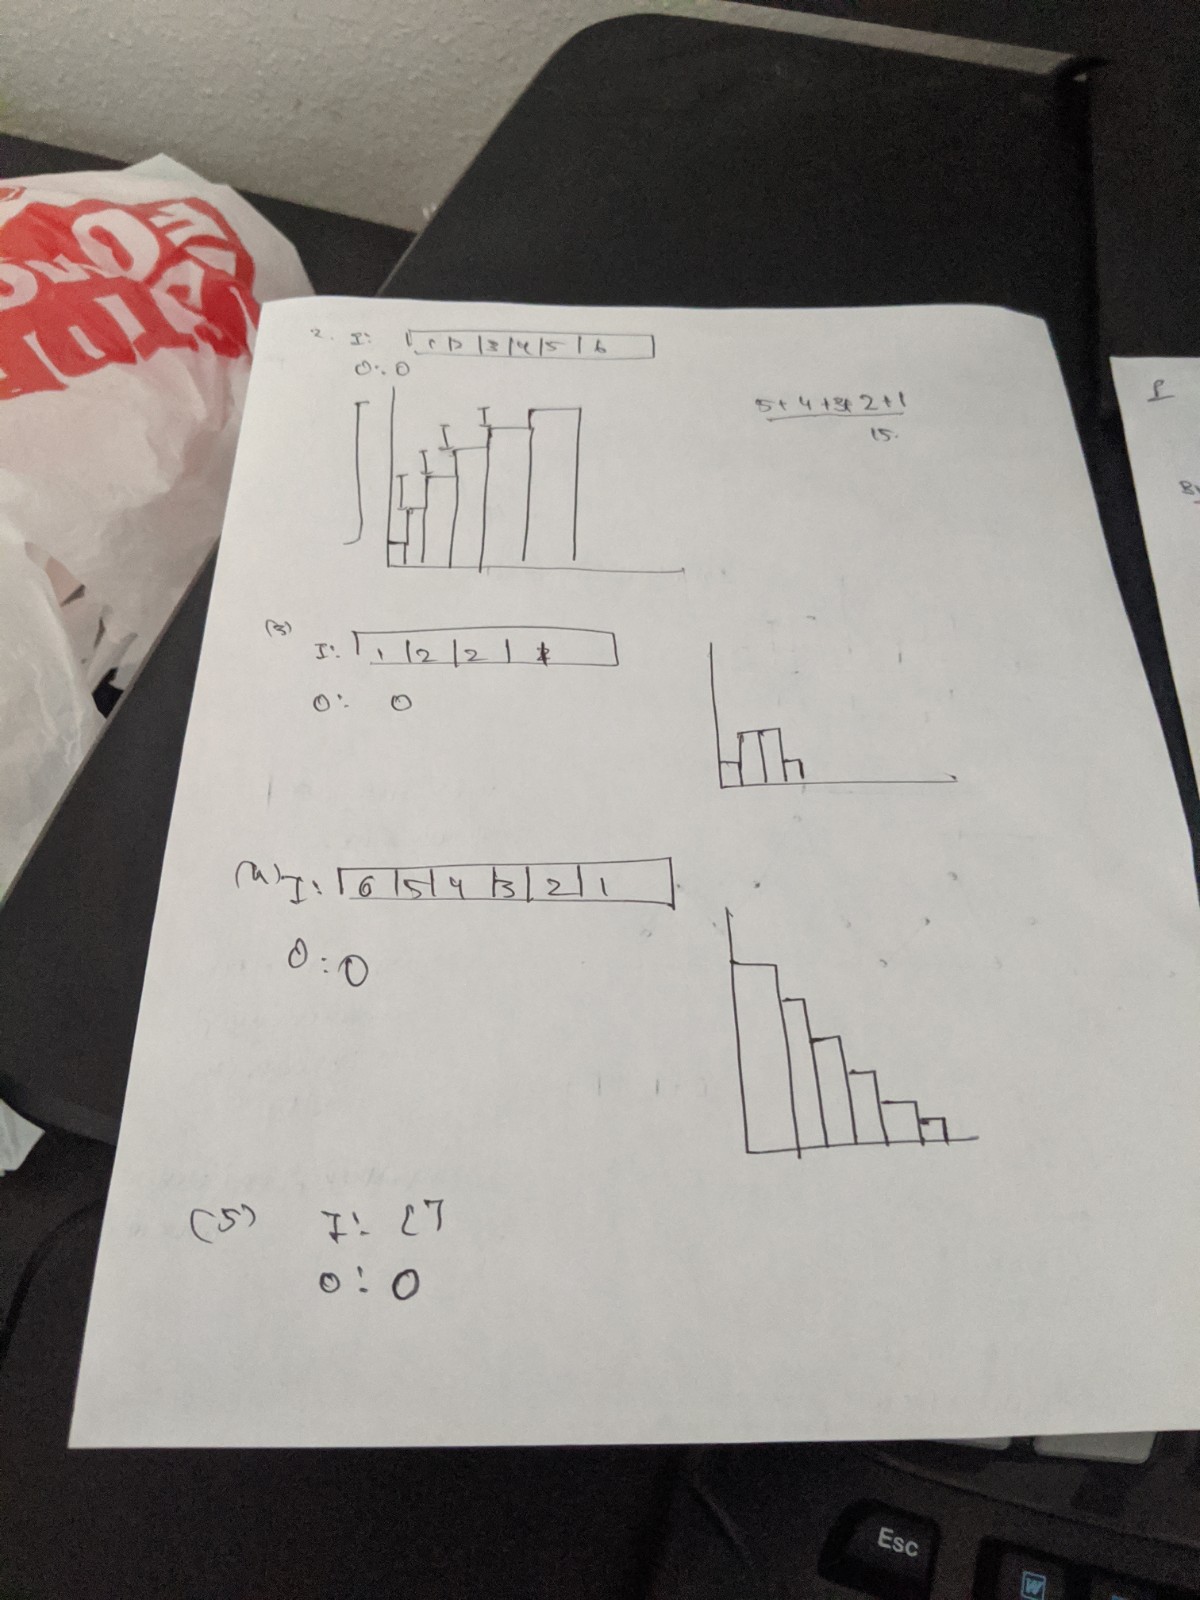 2. I: 1 | 2 | 3 | 4 | 5 | 6
O: 0
5+4+3+2+1
15.
(3)
I: 1 | 2 | 2 | 1
O: 0
(4) I: 6 | 5 | 4 | 3 | 2 | 1
O: 0
(5) I: [ ]
O: 0
Esc
W